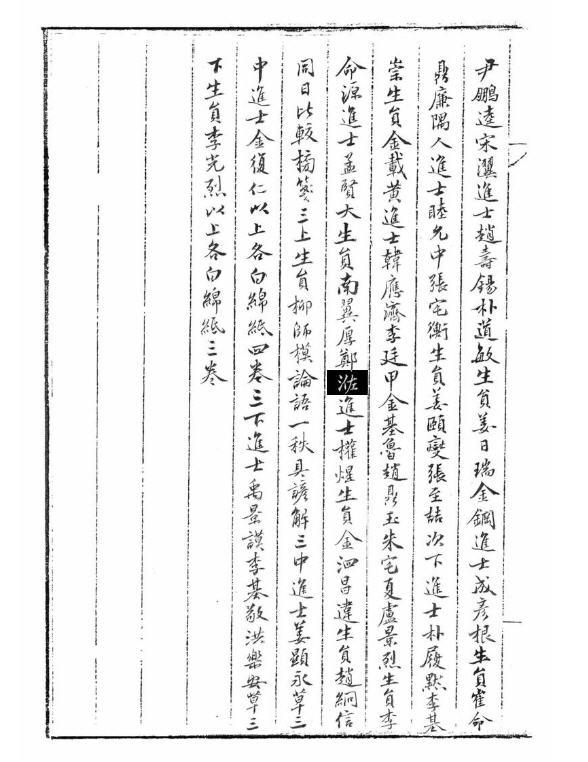 尹鵬逵宋瀷進士趙壽錫朴道敏生員姜日瑞金鋼進士成彦根生員崔命
鼎廉隅人進士睦允中張宅衡生員姜頤燮張至喆次下進士朴履默李基
崇生員金載黃進士韓應濟李廷甲金基魯趙鼎玉朱宅夏盧景烈生員李
命源進士孟賢大生員南翼厚鄭㳓進士權煋生員金泗昌違生員趙絅信
同日比較橘箋三上生員柳師模論語一秩具諺解三中進士姜顯永草三
中進士金復仁以上各白綿紙四卷三下進士禹景謨李基敬洪樂安草三
下生員李光烈以上各白綿紙三卷